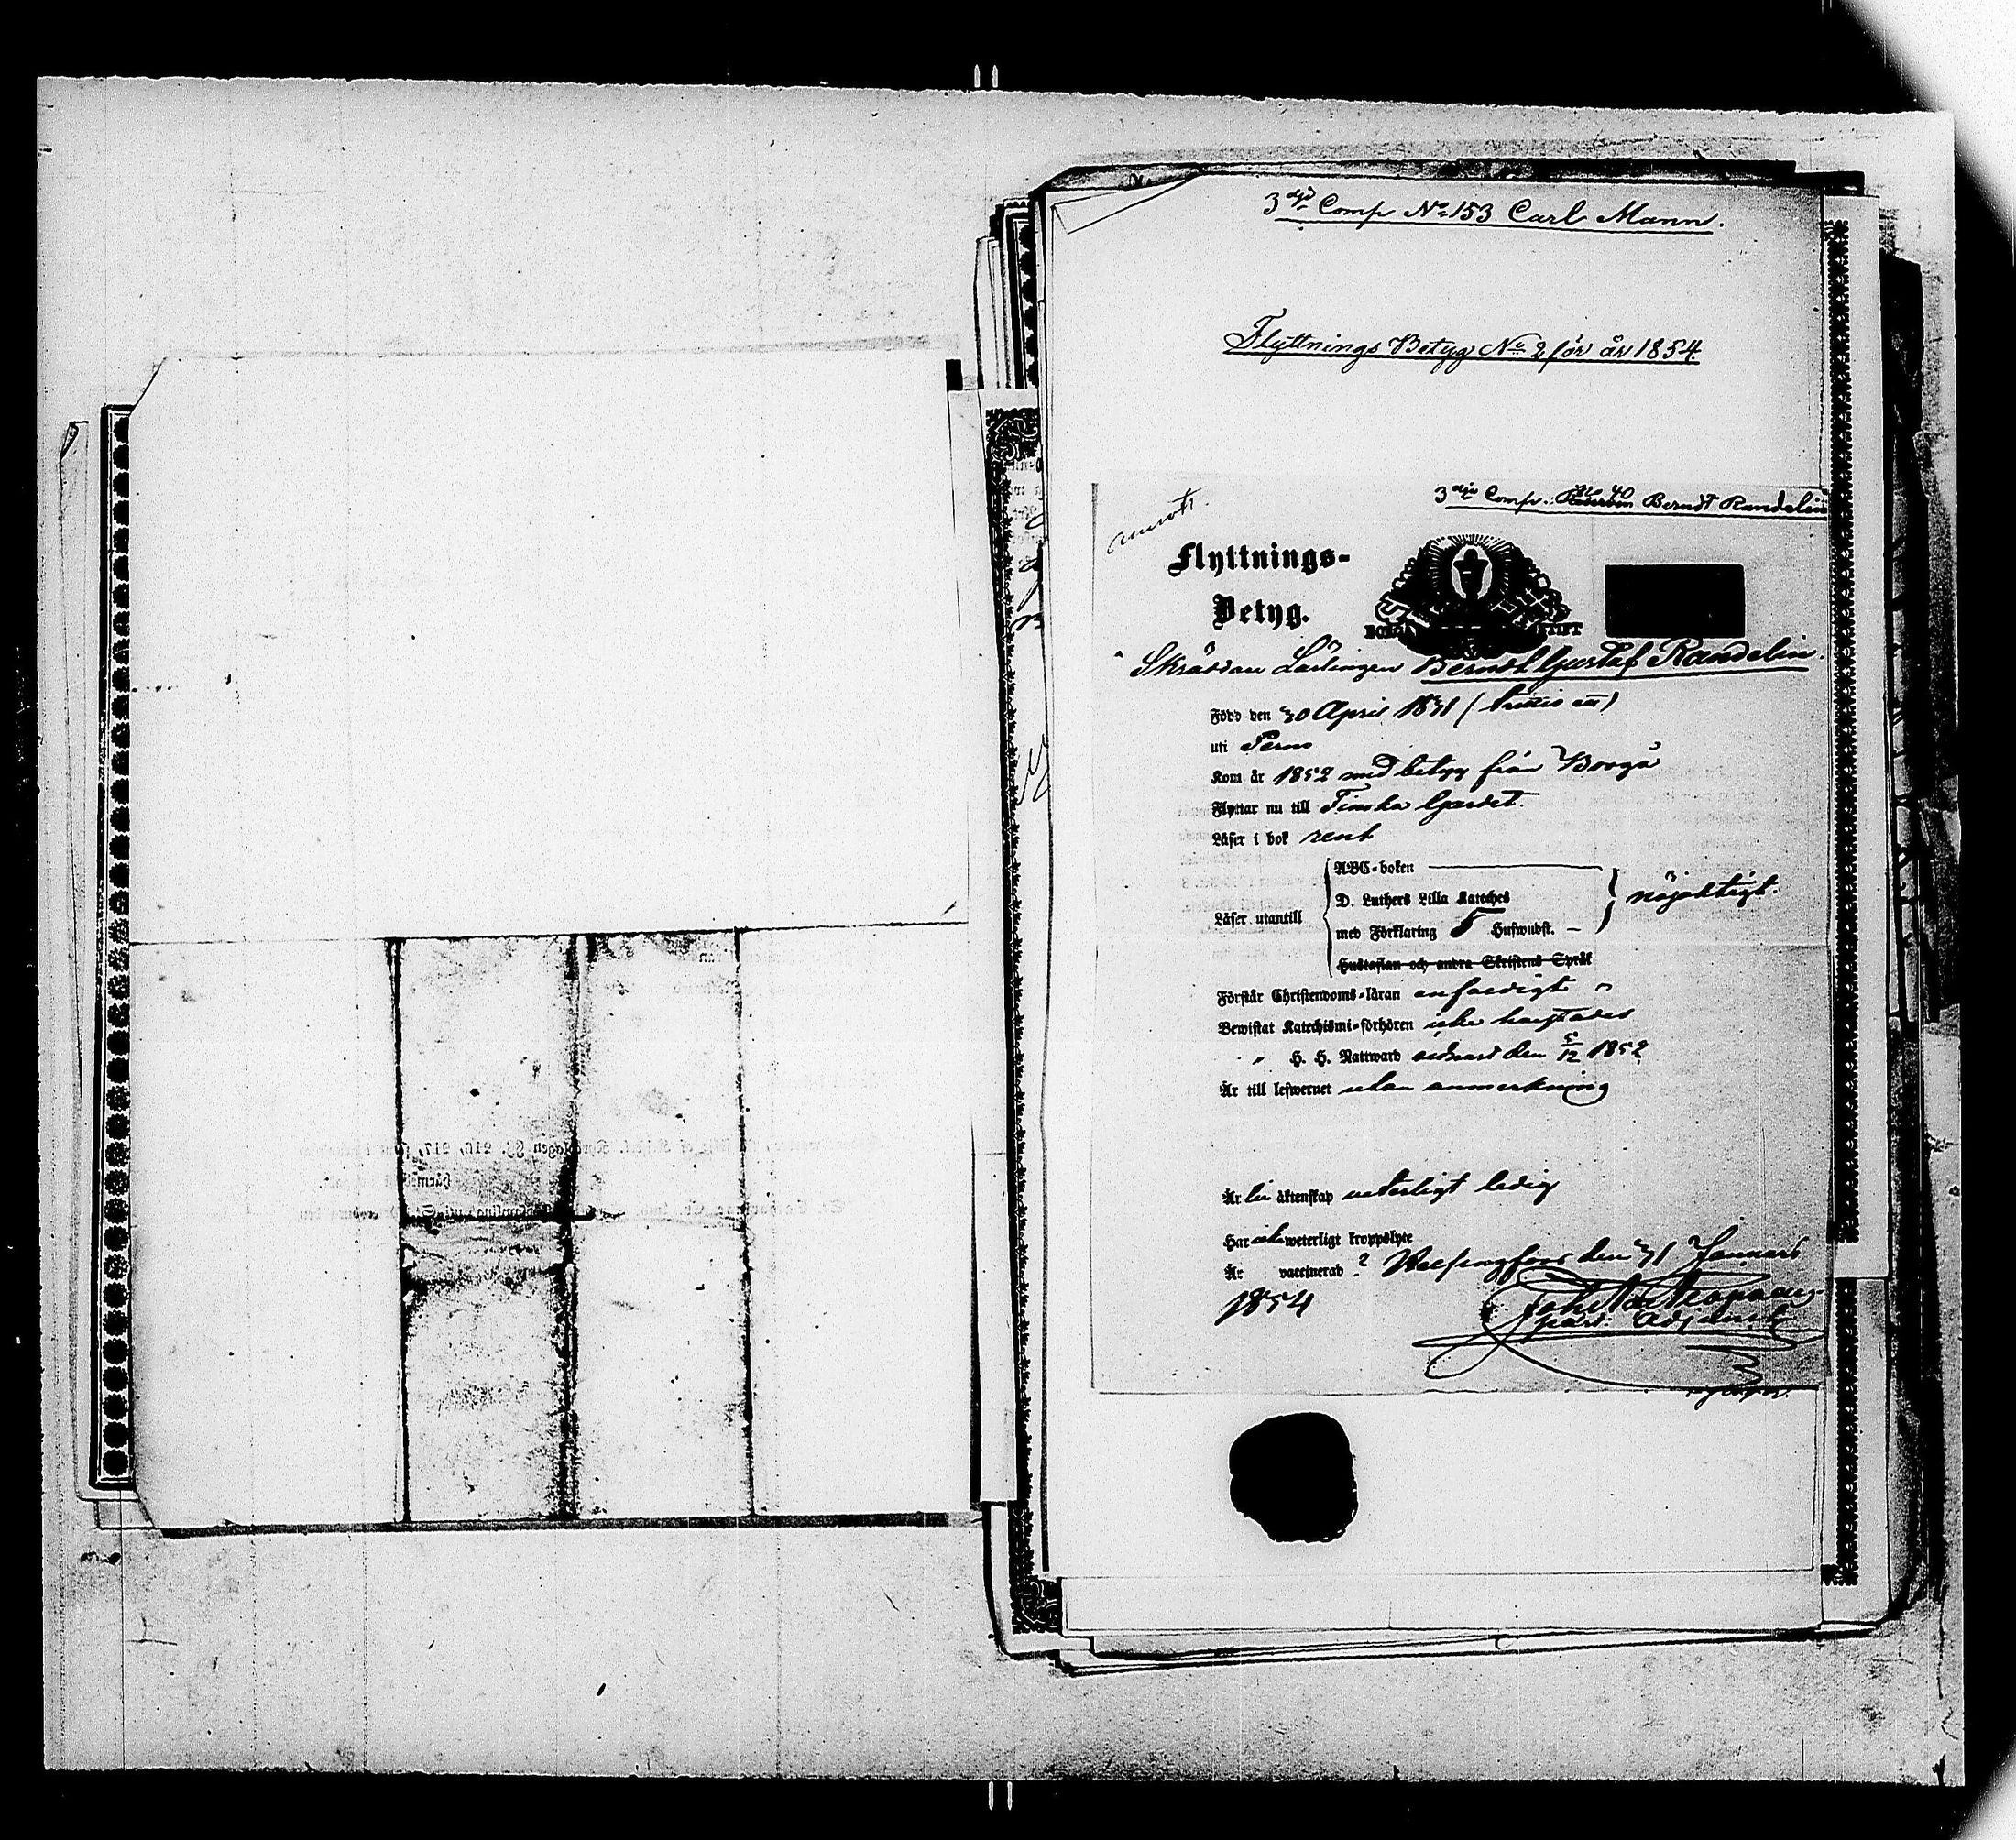 3dje Comp No 153 Carl Mann.
Flyttnings Betyg No 2 för år 1854
3dje Comp. No 40 Berndt Randelin
Flyttnings-
Betyg.
Skräddare Lärlingen Berndt Gustaf Randelin.
Född den 30 April 1831 (trettio ett)
uti Perno
Kom år 1852 med betyg från Borgå
Flyttar nu till Finska Gardet.
Läser i bok rent
ABC-boken
D. Luthers Lilla Kateches
Läser utantill
med Förklaring 5 Huswudst. –
nöjaktigt.
Hustaflan och andra Skriftens Språk
Förstår Christendoms-läran enfaldigt "
Bewistat Katechismi-förhören icke härstädes
" H. H. Nattward sednast den 5/12 1852
Är till lefwernet utan anmerkning
Är till äktenskap veterligt ledig
Har icke weterligt kroppslyte
Är vaccinerad ? Helsingfors den 31 Januari
1854